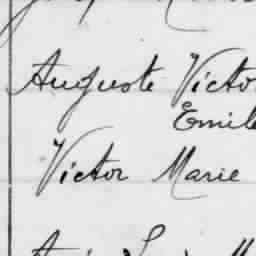 Auguste Victo
Emile
Victor Marie